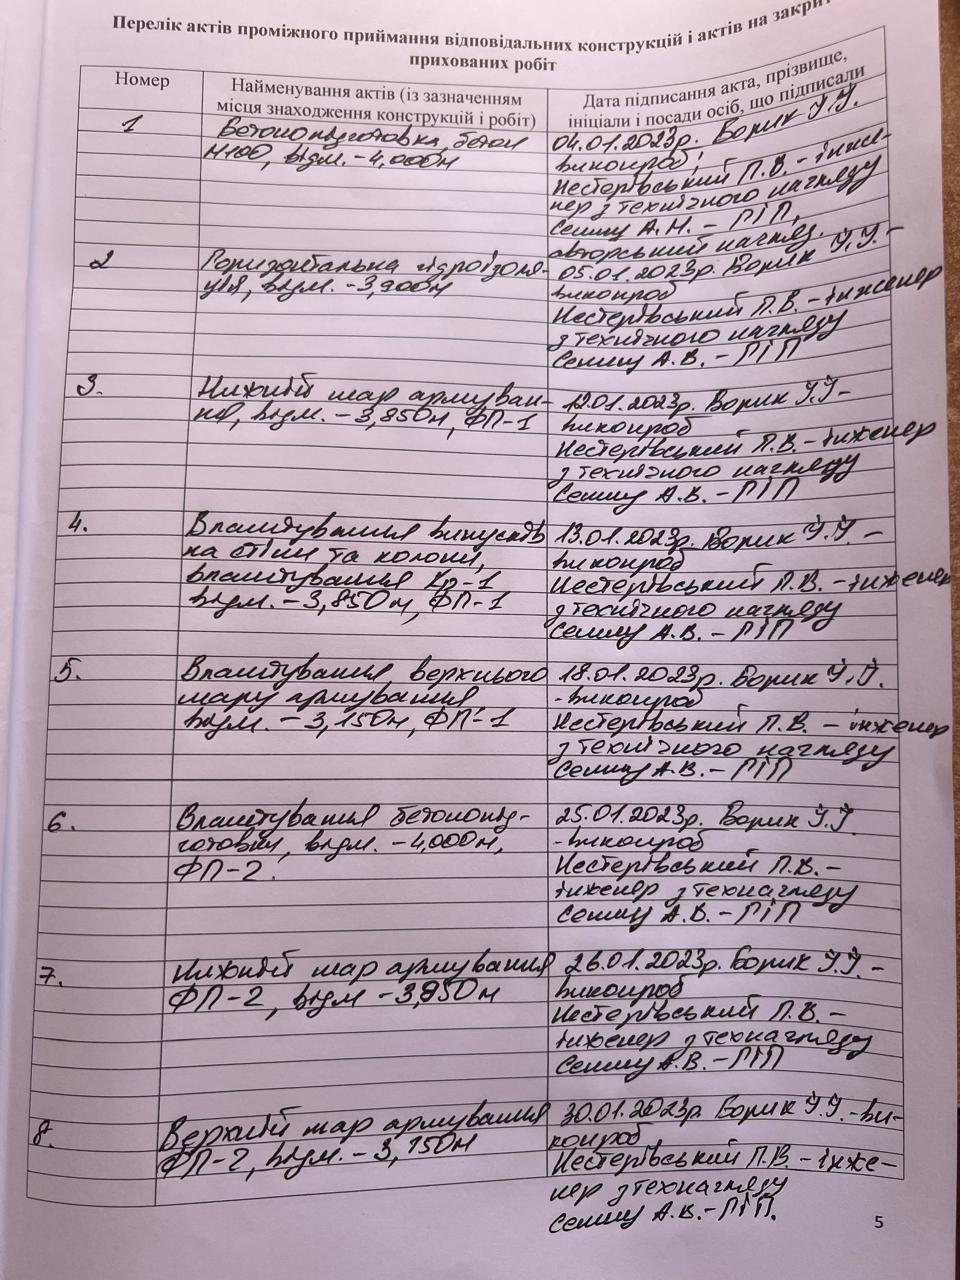 Перелік актів проміжного приймання відповідальних конструкцій і актів на закрит
прихованих робіт
Номер
Найменування актів (із зазначенням
місця знаходження конструкцій і робіт)
Дата підписання акта, прізвище,
ініціали і посади осіб, що підписали
1
Бетонопідготовка, бетон
М100, відм. -4,000м
04.01.2023р. Борик І.І.
виконроб,
Нестерівський П.В. - інже-
нер з технічного нагляду
Семчу А.М. - ГІП,
авторський нагляд.
2
Горизонтальна гідроізоля-
ція, відм. -3,900м
05.01.2023р. Борик І.І. -
виконроб
Нестерівський П.В. - інженер
з технічного нагляду
Семчу А.В. - ГІП
3.
Нижній шар армуван-
ня, відм. -3,850м, ФП-1
12.01.2023р. Борик І.І -
виконроб
Нестерівський П.В. - інженер
з технічного нагляду
Семчу А.В. - ГІП
4.
Влаштування випусків
на стіни та колони,
влаштування Кр-1
відм. -3,850м, ФП-1
13.01.2023р. Борик І.І. -
виконроб
Нестерівський П.В. - інженер
з технічного нагляду
Семчу А.В. - ГІП
5.
Влаштування верхнього
шару армування
відм. - 3,150м, ФП-1
18.01.2023р. Борик І.І.
- виконроб
Нестерівський П.В. - інженер
з технічного нагляду
Семчу А.В. - ГІП
6.
Влаштування бетонопід-
готовки, відм. -4,000м,
ФП-2.
25.01.2023р. Борик І.І.
- виконроб
Нестерівський П.В. -
інженер з технагляду
Семчу А.В. - ГІП
7.
Нижній шар армування
ФП-2, відм -3,850м
26.01.2023р. Борик І.І. -
виконроб
Нестерівський П.В. -
інженер з технагляду
Семчу А.В. - ГІП
8.
Верхній шар армування
ФП-2, відм. - 3,150м
30.01.2023р. Борик І.І. - ви-
конроб
Нестерівський П.В. - інже-
нер з технагляду
Семчу А.В. - ГІП.
5